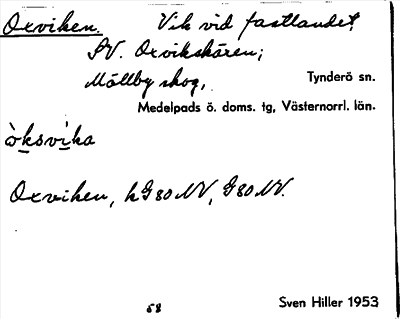 Oxviken. Vik vid fastlandet
SV. Oxvikskären;
Mållby skog, Tynderö sn.
Medelpads ö. doms. tg, Västernorrl. län.
òksvika
Oxviken, kG80NV, G80NV.
58 Sven Hiller 1953